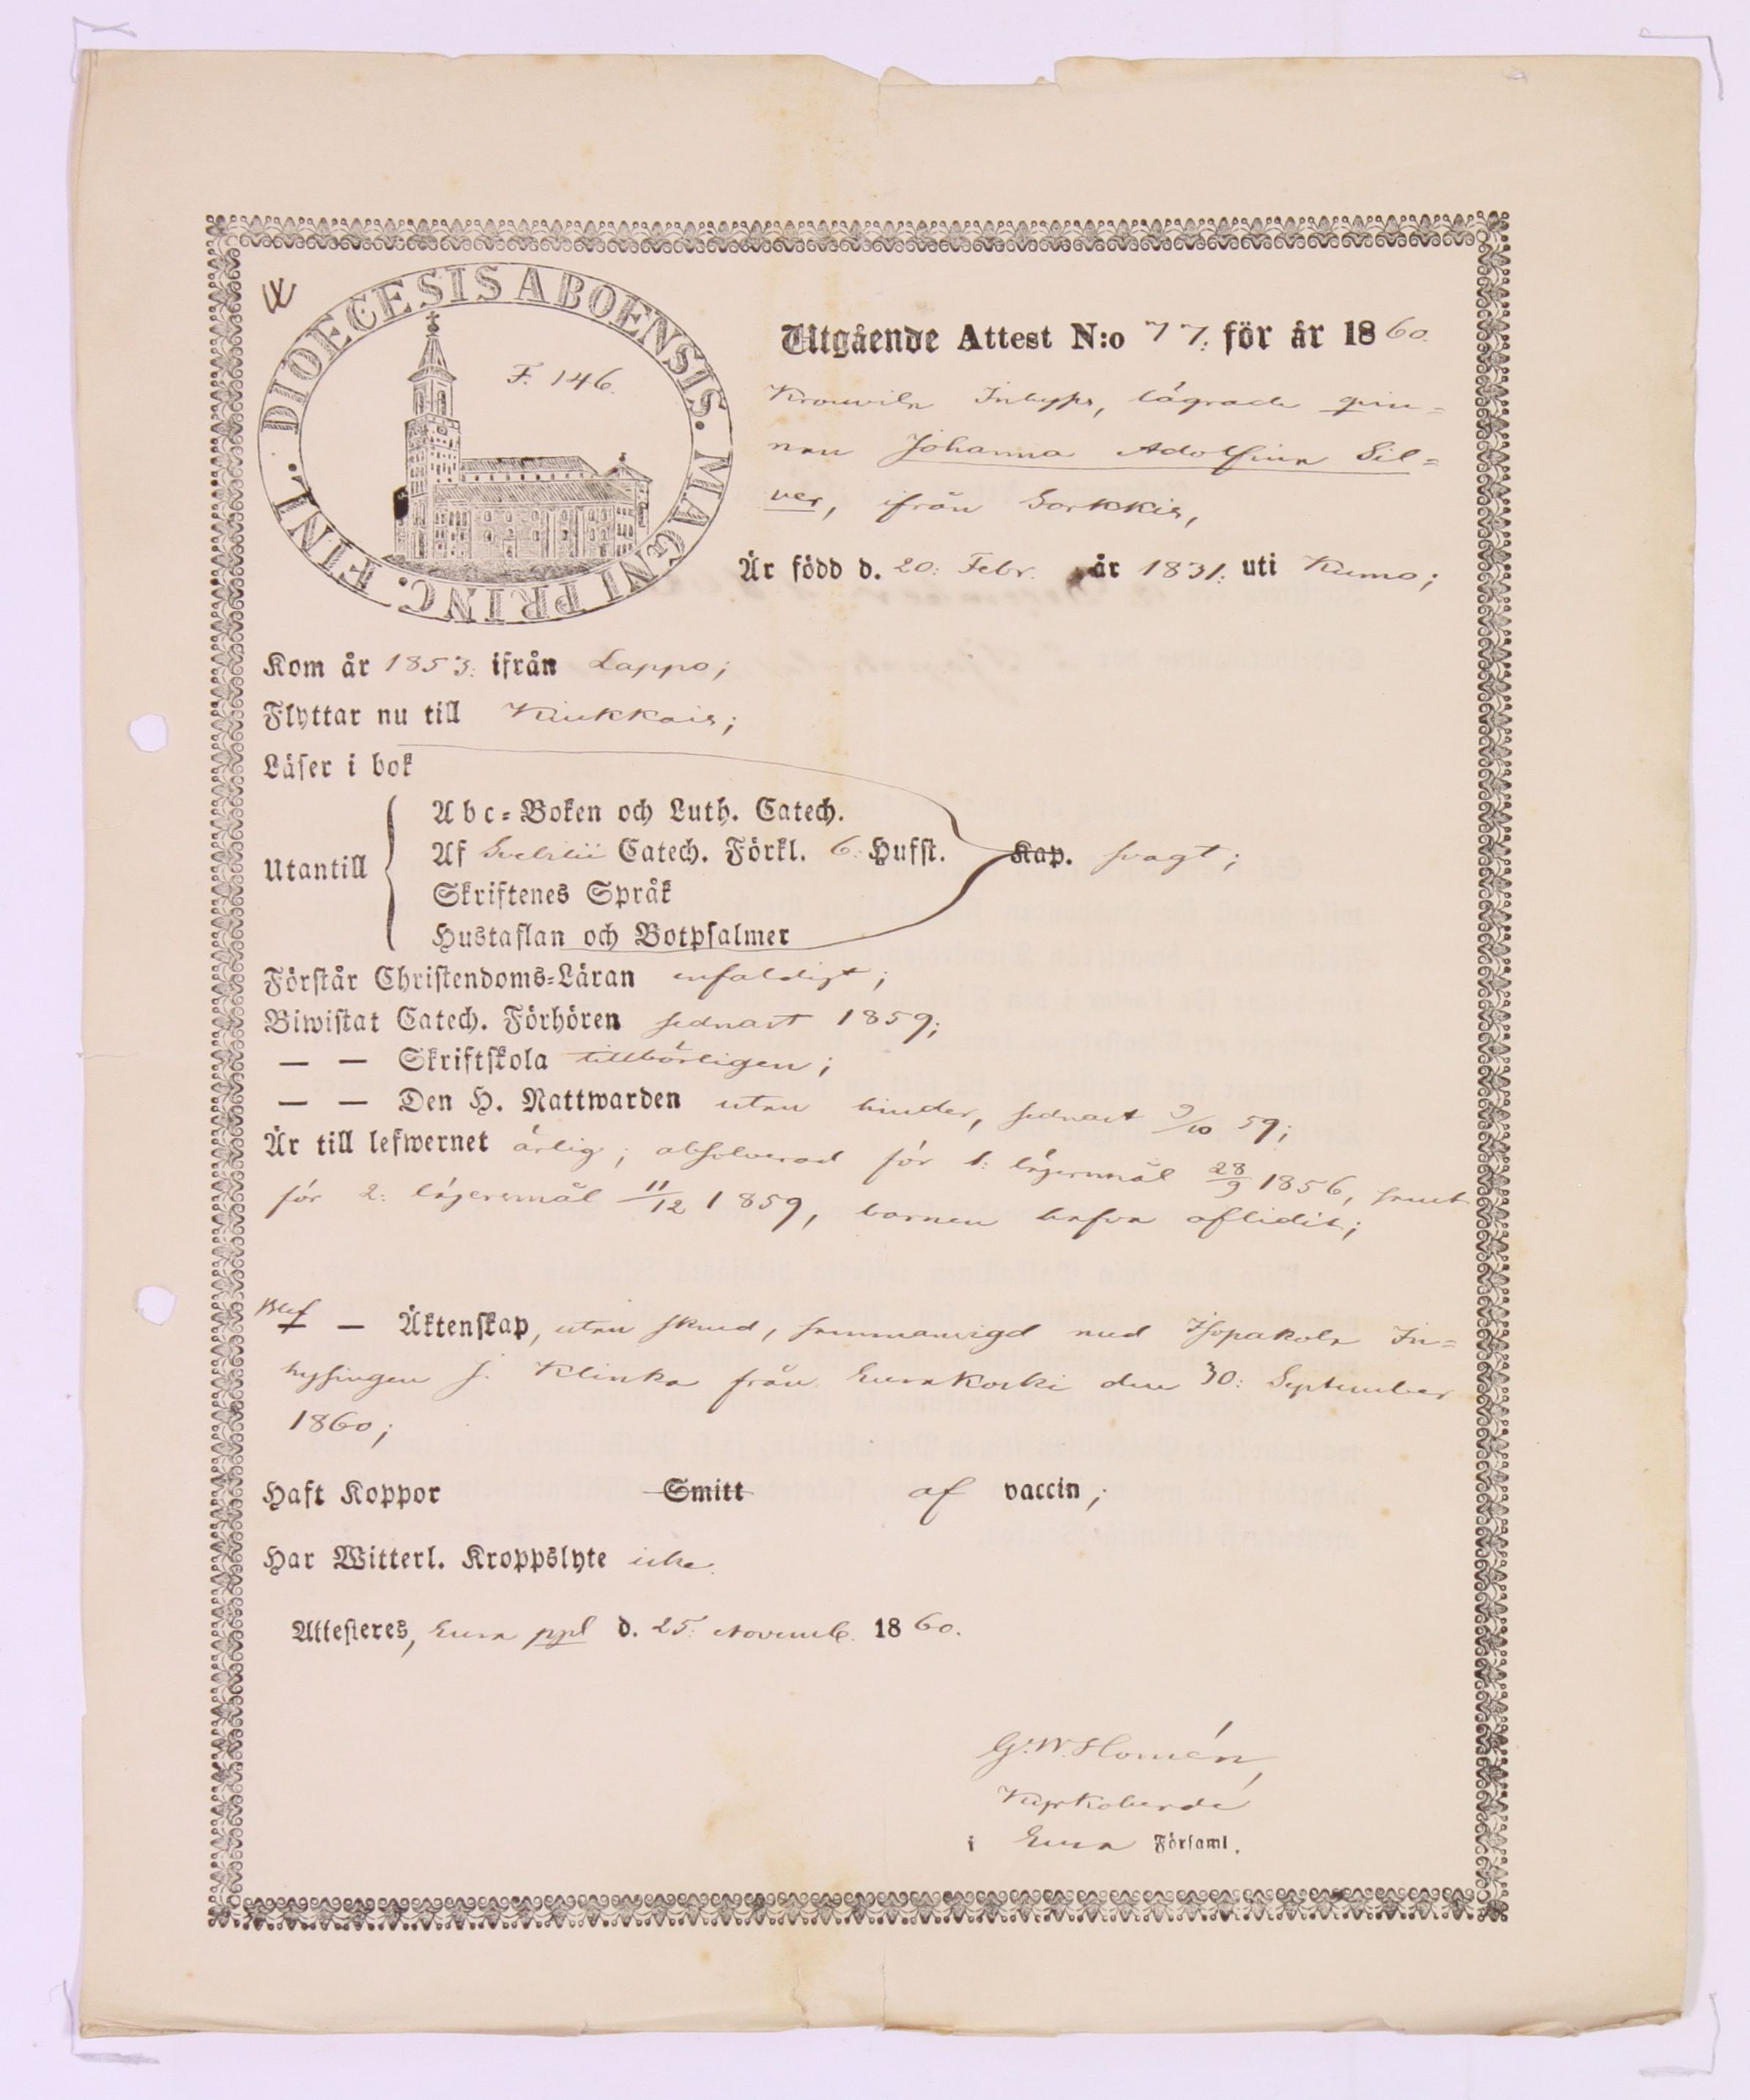 DIOECESIS ABOENSIS. MAGNI PRINC. FINL.
F. 146.
Utgående Attest N:o 77. för år 1860.
Inhyses, lägrade qvin=
nan Johanna Adolfina Sil=
ver, ifrån Sorkkis,
Är född d. 20. Febr. år 1831. uti Kumo;
Kom år 1853. ifrån Lappo;
Flyttar nu till Kiukkais;
Läser i bok
Utantill
Abc=Boken och Luth. Catech.
Af Svebilii Catech. Förkl. 6. Hufst. Kap. svagt;
Skriftenes Språk
Hustaflan och Botpsalmer
Förstår Christendoms=Läran enfaldigt;
Biwistat Catech. Förhören sednast 1859;
— — Skriftskola tillbörligen;
— — Den H. Nattwarden utan hinder, sednast 9/10 59;
Är till lefwernet ärlig; absolverad för 1: lägersmål 28/9 1856, samt
för 2: lägersmål 11/12 1859, barnen hafva aflidit;
Blef — Äktenskap, utan skrud, sammanvigd med Isopakola In=
hysingen J. Klinka från Eurakoski den 30: September
1860;
Haft Koppor Smitt af vaccin;
Har Witterl. Kroppslyte icke.
Attesteres, Eura ppl d. 25. Novemb. 1860.
G. W. Homén,
Kyrkoherde
i Eura Församl.